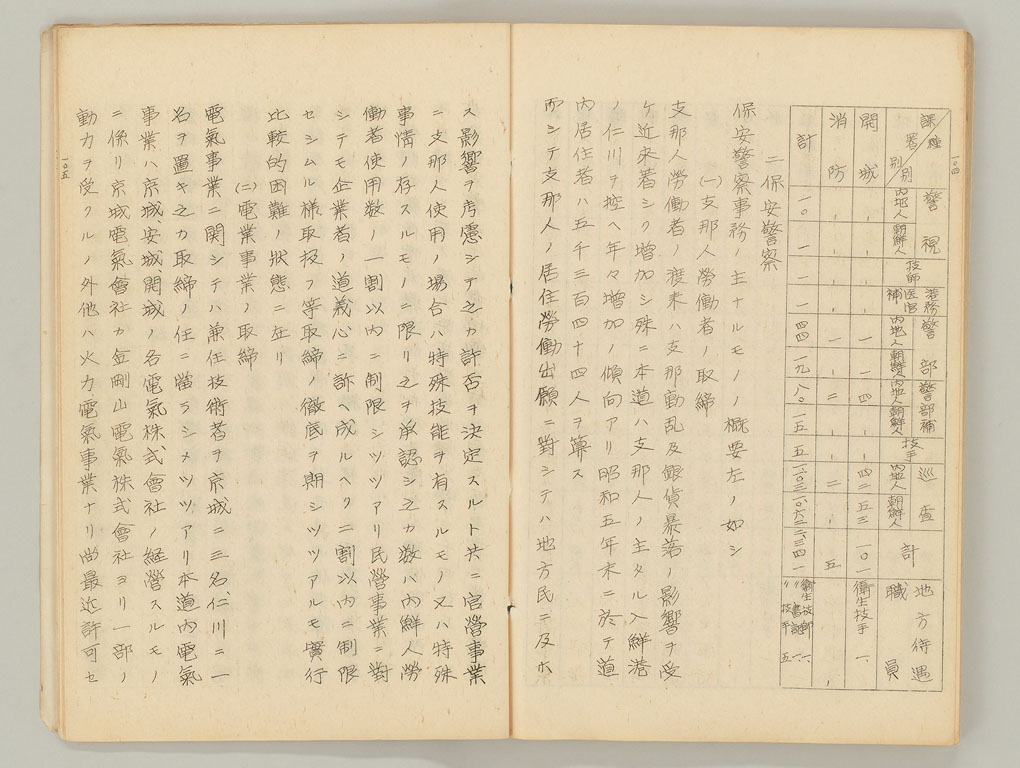 一〇四
課署別／種別
警視
內地人
朝鮮人
技師
港務医官補
警部
內地人
朝鮮人
警部補
內地人
朝鮮人
技手
巡查
內地人
朝鮮人
計
地方待遇職員
開城
一
一
四
四二
五三
一〇一
衛生技手 一
消防
一
二
二
五
計
一〇
一
一
一
四四
一九
八〇
一五
五
二保安警察
保安警察事務ノ主ナルモノノ概要左ノ如シ
(一)支那人勞働者ノ取締
支那人勞働者ノ渡來ハ支那動乱及銀貨暴落ノ影響ヲ受
ケ近來著シク增加シ殊ニ本道ハ支那人ノ主タル入鮮港
ノ仁川ヲ控ヘ年々增加ノ傾向アリ昭和五年末ニ於テ道
內居住者ハ五千三百四十四人ヲ算ス
而シテ支那人ノ居住勞働出願ニ對シテハ地方民ニ及ホ
ス影響ヲ考慮シテ之カ許否ヲ決定スルト共ニ官營事業
ニ支那人使用ノ場合ハ特殊技能ヲ有スルモノ又ハ特殊
事情ノ存スルモノニ限リ之ヲ承認シ之カ數ハ內鮮人勞
働者使用數ノ一割以內ニ制限シツツアリ民營事業ニ對
シテモ企業者ノ道義心ニ訴ヘ成ルヘク二割以內ニ制限
セシムル樣取扱フ等取締ノ徹底ヲ期シツツアルモ實行
比較的困難ノ狀態ニ在リ
(二)電業事業ノ取締
電氣事業ニ関シテハ兼任技術者ヲ京城ニ三名、仁川ニ一
名ヲ置キ之カ取締ノ任ニ當ラシメツツアリ本道內電氣
事業ハ京城、安城、開城ノ各電氣株式會社ノ経營スルモノ
ニ係リ京城電氣會社カ金剛山電氣株式會社ヨリ一部ノ
動力ヲ受クルノ外他ハ火力電氣事業ナリ尚最近許可セ
一〇五